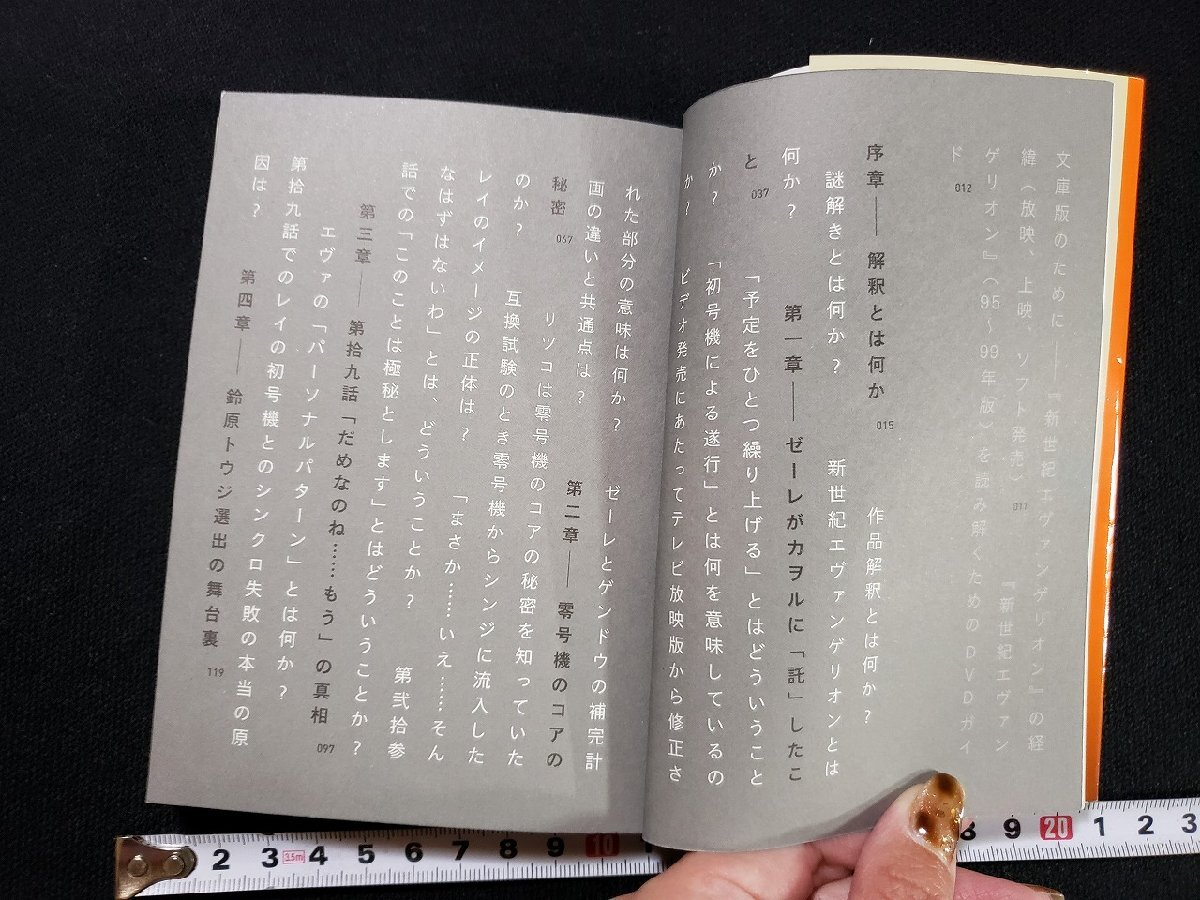 文庫版のために
『新世紀エヴァンゲリオン』の経
緯（放映、上映、ソフト発売）
011
『新世紀エヴァン
ゲリオン』（95〜99年版）を読み解くためのDVDガイ
ド
012
序章――解釈とは何か
015
作品解釈とは何か？
謎解きとは何か？
新世紀エヴァンゲリオンとは
何か？
第一章――ゼーレがカヲルに「託」したこ
と
037
「予定をひとつ繰り上げる」とはどういうこと
か？
「初号機による遂行」とは何を意味しているの
か？
ビデオ発売にあたってテレビ放映版から修正さ
れた部分の意味は何か？
ゼーレとゲンドウの補完計
画の違いと共通点は？
第二章――零号機のコアの
秘密
057
リツコは零号機のコアの秘密を知っていた
のか？
互換試験のとき零号機からシンジに流入した
レイのイメージの正体は？
「まさか……いえ……そん
なはずはないわ」とは、どういうことか？
第弐拾参
話での「このことは極秘とします」とはどういうことか？
第三章――第拾九話「だめなのね……もう」の真相
097
エヴァの「パーソナルパターン」とは何か？
第拾九話でのレイの初号機とのシンクロ失敗の本当の原
因は？
第四章――鈴原トウジ選出の舞台裏
119
2 3 3.5m 4 5 6 7 8 9 10 1
8 9 20 1 2 3